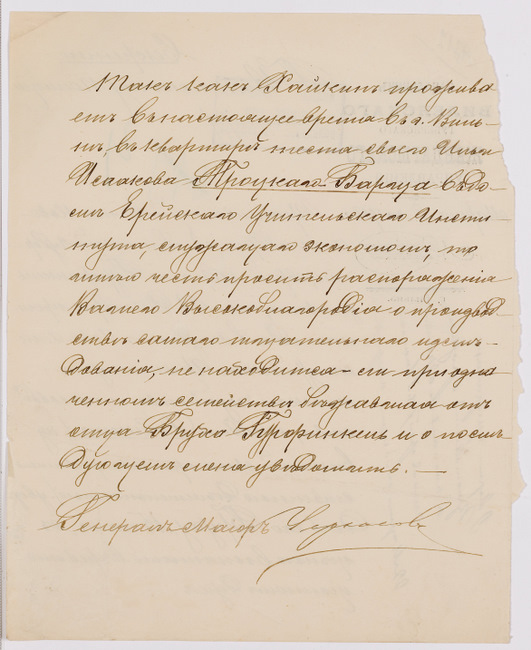 Такъ какъ Хайкинъ прожива
етъ въ настоящее время въ г. Виль-
нѣ, въ квартирѣ тестя своего Ильи
Исаакова Троцкаго-Барца въ до-
мѣ Еврейскаго Учительскаго Инсти
тута, служащаго экономомъ, то
имѣю честь просить распоряженія
Вашего Высокоблагородія о производ
ствѣ самаго тщательнаго изслѣ-
дованія, не находится-ли при озна
ченномъ семействѣ бѣжавшая отъ
отца Бруха Гурфинкель и о послѣ
дующемъ меня увѣдомить. —
Генералъ Маіоръ Черкасовъ